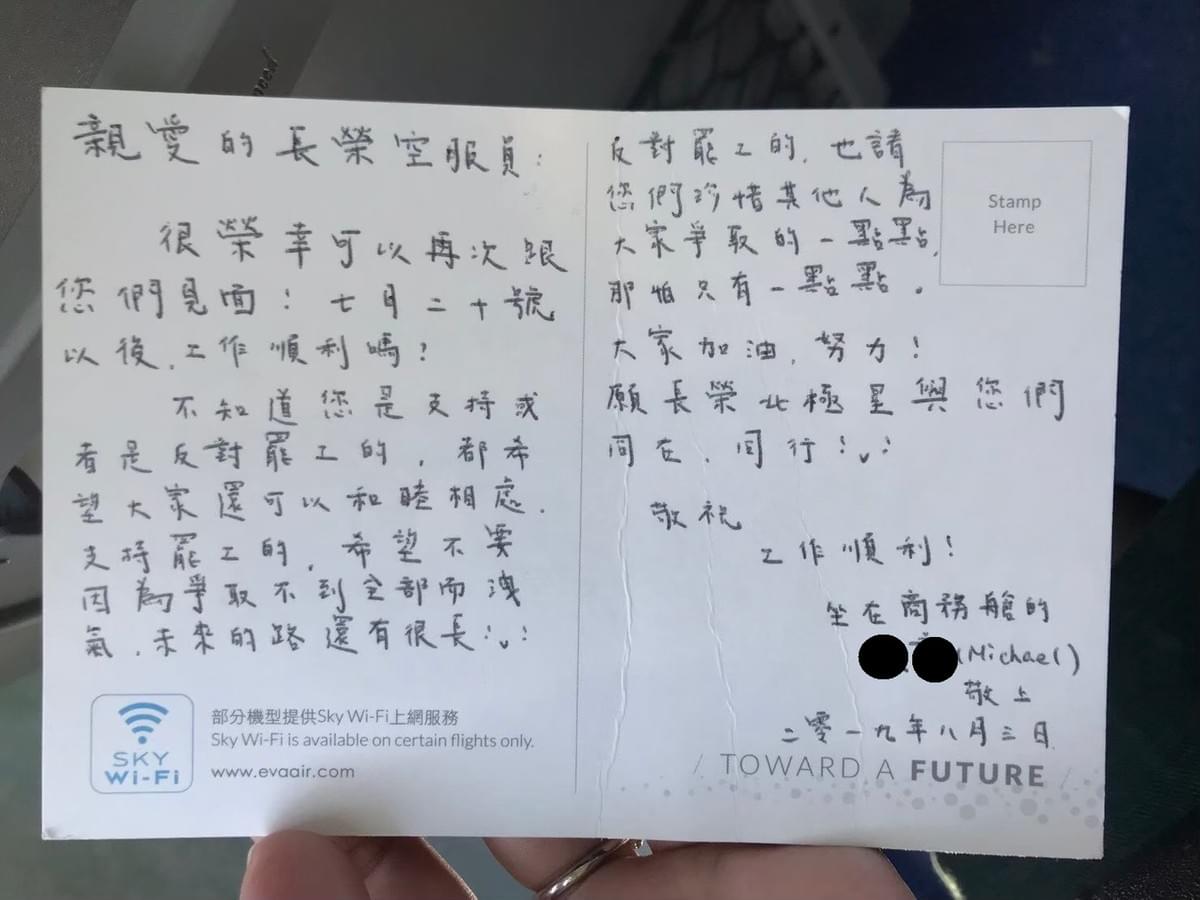 親愛的長榮空服員：
很榮幸可以再次跟
您們見面！七月二十號
以後，工作順利嗎？
不知道您是支持或
者是反對罷工的，都希
望大家還可以和睦相處．
支持罷工的，希望不要
因為爭取不到全部而洩
氣．未來的路還有很長！◡！
SKY
Wi-Fi
部分機型提供Sky Wi-Fi上網服務
Sky Wi-Fi is available on certain flights only.
www.evaair.com
反對罷工的，也請
您們珍惜其他人為
大家爭取的一點點，
那怕只有一點點。
大家加油，努力！
願長榮北極星與您們
同在，同行！◡！
敬祝
工作順利！
坐在商務艙的
(Michael)
敬上
二零一九年八月三日
Stamp
Here
/ TOWARD A FUTURE /